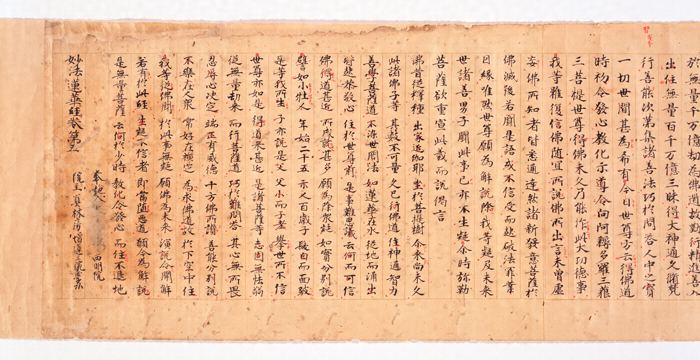 於無量千万億劫為佛道故勤行精進善入
出住無量百千万億三昧得大神通久脩梵
行善能次第集諸善法巧於問答人中之寶
一切世間甚為希有今日世尊方云得佛道
時初令發心教化示導令向阿耨多羅三藐
三菩提世尊得佛未久乃能作此大功德事
我等雖復信佛隨宜所說佛所出言未曾虛
妄佛所知者皆悉通達然諸新發意菩薩於
佛滅後若聞是語或不信受而起破法罪業
因緣唯然世尊願為解說除我等疑及未來
世諸善男子聞此事已亦不生疑尒時弥勒
菩薩欲重宣此義而說偈言
佛昔從釋種 出家近伽耶 坐於菩提樹 尒來尚未久
此諸佛子等 其數不可量 久已行佛道 住神通智力
善學菩薩道 不染世間法 如蓮華在水 從地而涌出
皆起恭敬心 住於世尊前 是事難思議 云何而可信
佛得道甚近 所成就甚多 願為除衆疑 如實分別說
譬如少壯人 年始二十五 示人百歲子 髮白而面皺
是等我所生 子亦說是父 父少而子老 舉世所不信
世尊亦如是 得道來甚近 是諸菩薩等 志固無怯弱
從無量劫來 而行菩薩道 巧於難問答 其心無所畏
忍辱心決定 端正有威德 十方佛所讚 善能分別說
不樂在人衆 常好在禪定 為求佛道故 於下空中住
我等從佛聞 於此事無疑 願佛為未來 演說令開解
若有於此經 生疑不信者 即當墮惡道 願今為解說
是無量菩薩 云何於少時 教化令發心 而住不退地
妙法蓮華經卷第五
奉 西明院
院主真林房